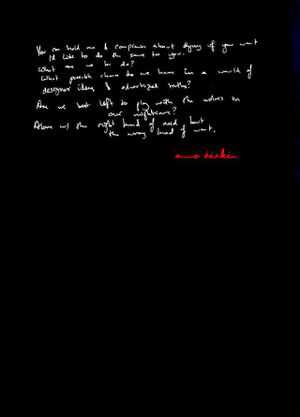 You can hold me & complain about dying if you want
I'd like to do the same to you.
What are we to do?
What possible chance do we have in a world of
designer ideas & advertized truths?
Are we best left to play with the wolves in
our nightmare?
Alone w/ the right kind of need but
the wrong kind of want.